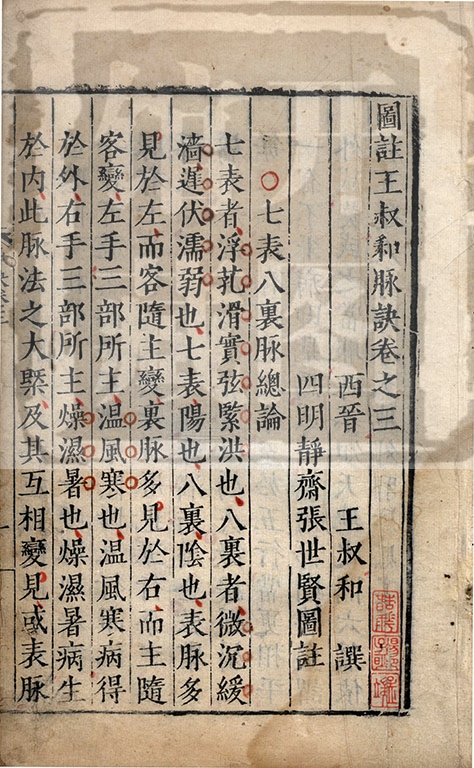 圖註王叔和脉訣卷之三
西晉 王叔和 譔
四明靜齋張世賢圖註
○七表八裏脉總論
七表者浮芤滑實弦緊洪也八裏者微沉緩
濇遲伏濡弱也七表陽也八裏陰也表脉多
見於左而客隨主變裏脉多見於右而主隨
客變左手三部所主温風寒也温風寒病得
於外右手三部所主燥濕暑也燥濕暑病生
於内此脉法之大槩及其互相變見或表脉